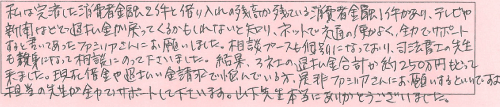 私は完済した消費者金融2件と借り入れの残高が残っている消費者金融1件があり、テレビや
新聞などで過払い金が戻ってくるかもしれないと知り、ネットで交通の便がよく、全力でサポート
すると書いてあったさんにお願いしました。相談ブースも個別になっており、司法書士の先生
も親身になって相談にのって下さいました。結果、3社の過払い金合計が約250万円もどって
来ました。現在借金や過払い金請求で悩んでいる方、是非さんにお願いするといいですよ
担当の先生が全力でサポートして下さいます。山下先生本当にありがとうございました。